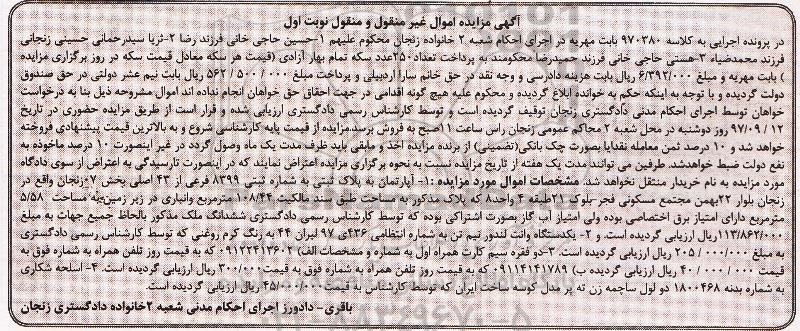 آگهی مزایده اموال غیر منقول و منقول نوبت اول
در پرونده اجرایی به کلاسه ۹۷۰۳۸۰ بابت مهریه در اجرای احکام شعبه ۲ خانواده زنجان محکوم علیهم ۱-حسین حاجی خانی فرزند رضا ۲-ثریا سیدرحمانی حسینی زنجانی
فرزند محمدضیاء ۳-هستی حاجی خانی فرزند حمیدرضا محکومند به پرداخت تعداد ۲۵۰عدد سکه تمام بهار آزادی (قیمت هر سکه معادل قیمت سکه در روز برگزاری مزایده
) بابت مهریه و مبلغ ۶/۳۹۲/۰۰۰ ریال بابت هزینه دادرسی و وجه نقد در حق خانم سارا اردبیلی و پرداخت مبلغ ۵۶۲/۵۰۰/۰۰۰ ریال بابت نیم عشر دولتی در حق صندوق
دولت گردیده و با توجه به اینکه حکم به خوانده ابلاغ گردیده و محکوم علیه هیچ گونه اقدامی در جهت احقاق حق خواهان انجام نداده اند اموال مشروحه ذیل بنا به درخواست
خواهان توسط اجرای احکام مدنی دادگستری زنجان توقیف گردیده است و توسط کارشناس رسمی دادگستری ارزیابی شده و قرار است از طریق مزایده حضوری در تاریخ
۹۷/۰۹/۱۲ روز دوشنبه در محل شعبه ۲ محاکم عمومی زنجان راس ساعت ۱۱صبح به فروش برسد.مزایده از قیمت پایه کارشناسی شروع و به بالاترین قیمت پیشنهادی فروخته
خواهد شد و ۱۰ درصد ثمن معامله نقدایا بصورت چک بانکی(تضمینی) از برنده مزایده اخذ و مابقی باید ظرف مدت یک ماه وصول گردد در غیر اینصورت ۱۰ درصد ماخوذه به
نفع دولت ضبط خواهدشد. طرفین می توانند مدت یک هفته از تاریخ مزایده نسبت به نحوه برگزاری مزایده اعتراض نمایند که در اینصورت تارسیدگی به اعتراض از سوی دادگاه
مورد مزایده به نام خریدار منتقل نخواهد شد. مشخصات اموال مورد مزایده :۱- آپارتمان به پلاک ثبتی به شماره ثبتی ۸۳۹۹ فرعی از ۴۳ اصلی بخش ۷زنجان واقع در
زنجان بلوار ۲۲بهمن مجتمع مسکونی فجر-بلوک ۲۱طبقه ۴ واحد۸ که پلاک مذکور به مساحت طبق سند مالکیت ۱۰۸/۴۴ مترمربع وانباری در زیر زمین به مساحت ۵/۵۸
مترمربع دارای امتیاز برق اختصاصی بوده ولی امتیاز آب گاز بصورت اشتراکی بوده که توسط کارشناس رسمی دادگستری ششدانگ ملک مذکور بالحاظ جمیع جهات به مبلغ
۱۱۳/۸۶۲/۰۰۰ریال ارزیابی گردیده است. و ۲- یکدستگاه وانت لندور نیم تن به شماره انتظامی ۴۳۶ی ۹۷ ایران ۴۴ به رنگ کرم روغنی که توسط کارشناس رسمی دادگستری
به مبلغ ۲۰۵/۰۰۰/۰۰۰ ریال ارزیابی گردیده است. ۳-دو فقره سیم کارت همراه اول به شماره و مشخصات الف) ۰۹۱۲۲۴۱۳۶۰۲ که به قیمت روز تلفن همراه به شماره فوق به
قیمت ۴۰/۰۰۰/۰۰۰ ریال ارزیابی گردیده ب) ۰۹۱۱۴۱۴۱۷۸۹ که به قیمت روز تلفن همراه به شماره فوق به قیمت۳۰۰/۰۰۰ریال ارزیابی گردیده است. ۴- اسلحه شکاری
به شماره بدنه ۱۸۰۰۴۶۸ دو لول ساچمه زن ته پر مدل کوسه ساخت ایران که توسط کارشناس به قیمت۴۵/۰۰۰/۰۰۰ریال ارزیابی گردیده است.
باقری- دادورز اجرای احکام مدنی شعبه ۲خانواده دادگستری زنجان